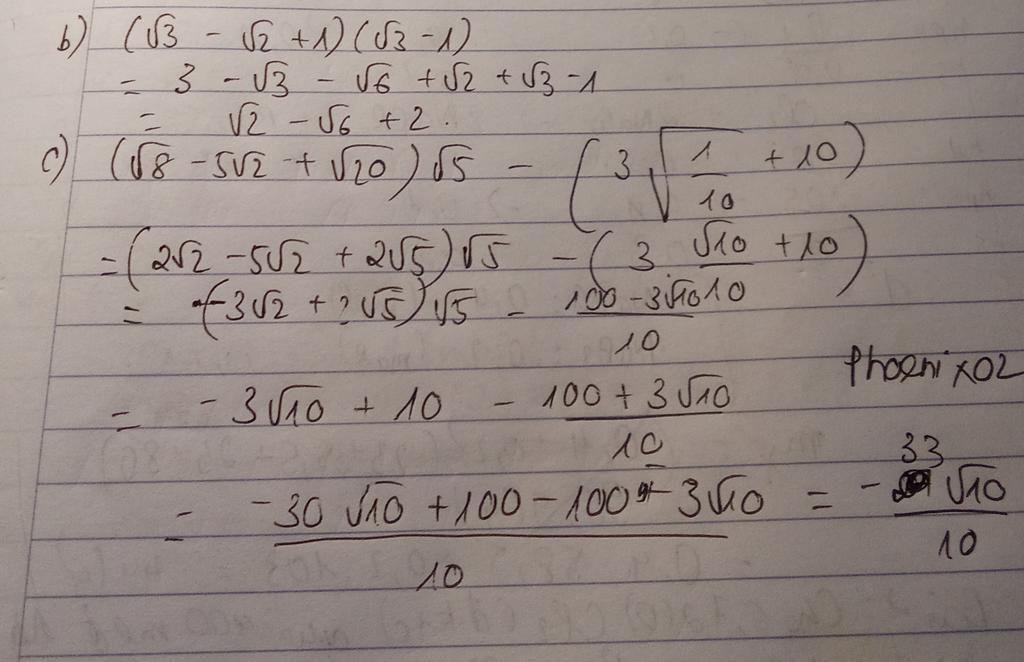 b) (√3 - √2 + 1)(√3 - 1)
= 3 - √3 - √6 + √2 + √3 - 1
= √2 - √6 + 2.
c) (√8 - 5√2 + √20)√5 - (3√(1/10) + 10)
= (2√2 - 5√2 + 2√5)√5 - (3. √10/10 + 10)
= (-3√2 + 2√5)√5 - (100 - 3√10)/10
= -3√10 + 10 - (100 + 3√10)/10
Phoenix02
= (-30√10 + 100 - 100 - 3√10)/10 = -33√10/10